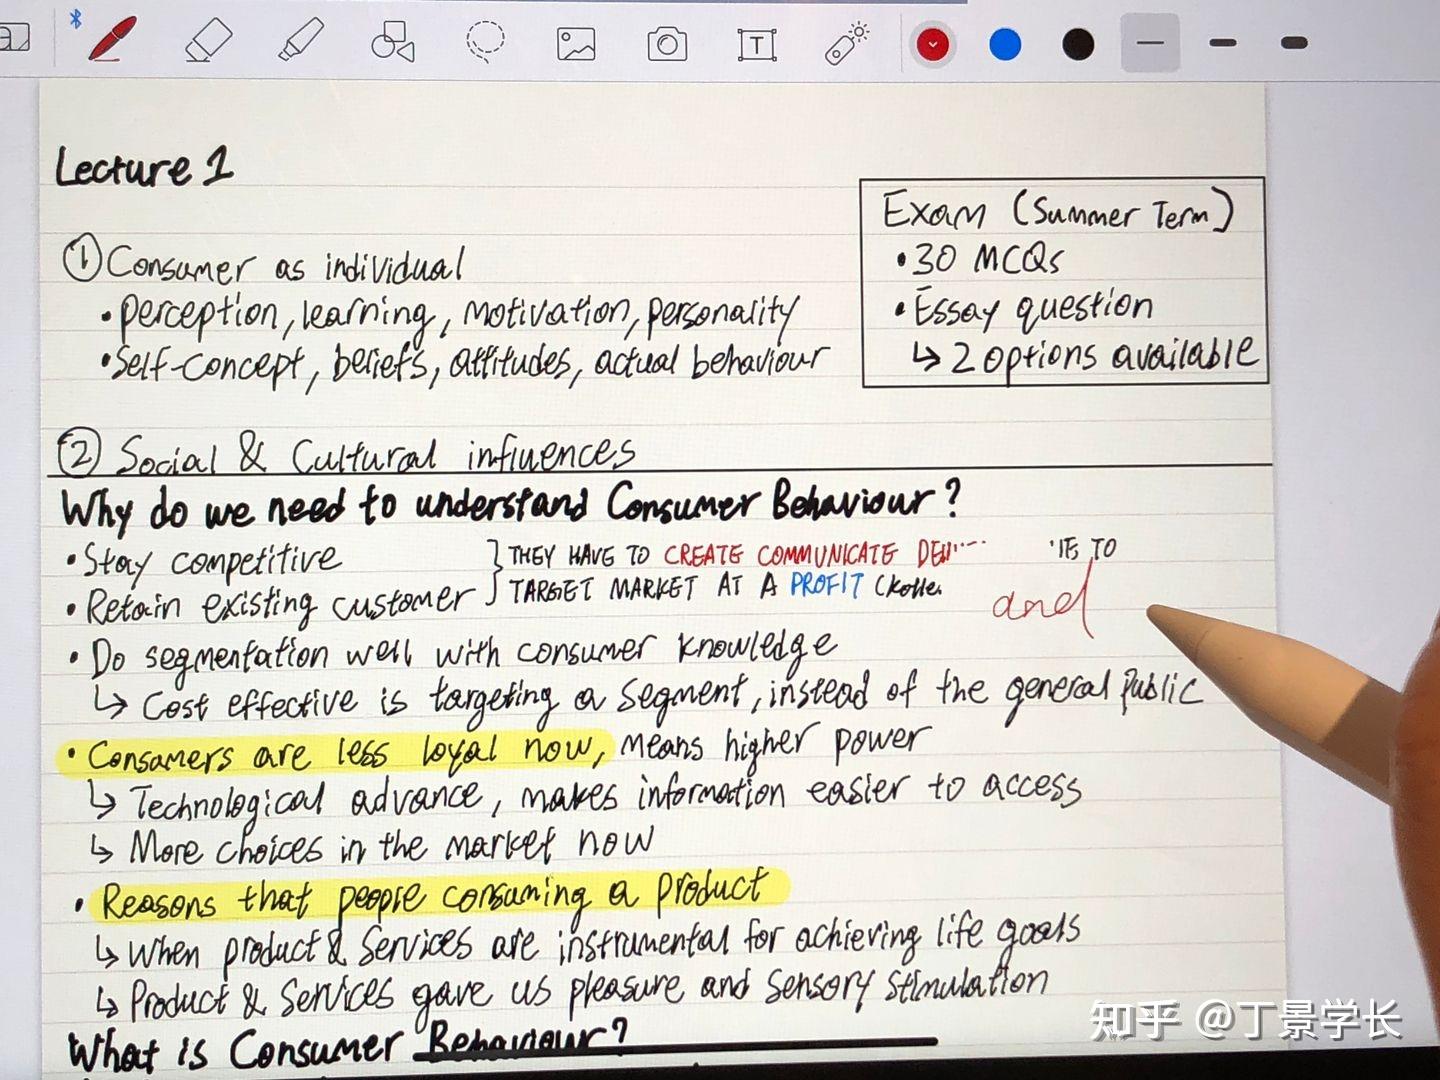 Lecture 1
Exam (Summer Term)
• 30 MCQs
• Essay question
↳ 2 options available
① Consumer as individual
• perception, learning, motivation, personality
• Self-concept, beliefs, attitudes, actual behaviour
② Social & Cultural influences
Why do we need to understand Consumer Behaviour?
• Stay competitive
• Retain existing customer
THEY HAVE TO CREATE COMMUNICATE TO
TARGET MARKET AT A PROFIT
and
• Do segmentation well with consumer knowledge
↳ Cost effective is targeting a segment, instead of the general public
• Consumers are less loyal now, means higher power
↳ Technological advance, makes information easier to access
↳ More choices in the market now
• Reasons that people consuming a product
↳ When product & Services are instrumental for achieving life goals
↳ Product & Services gave us pleasure and sensory stimulation
What is Consumer Behaviour?
知乎 @丁景学长